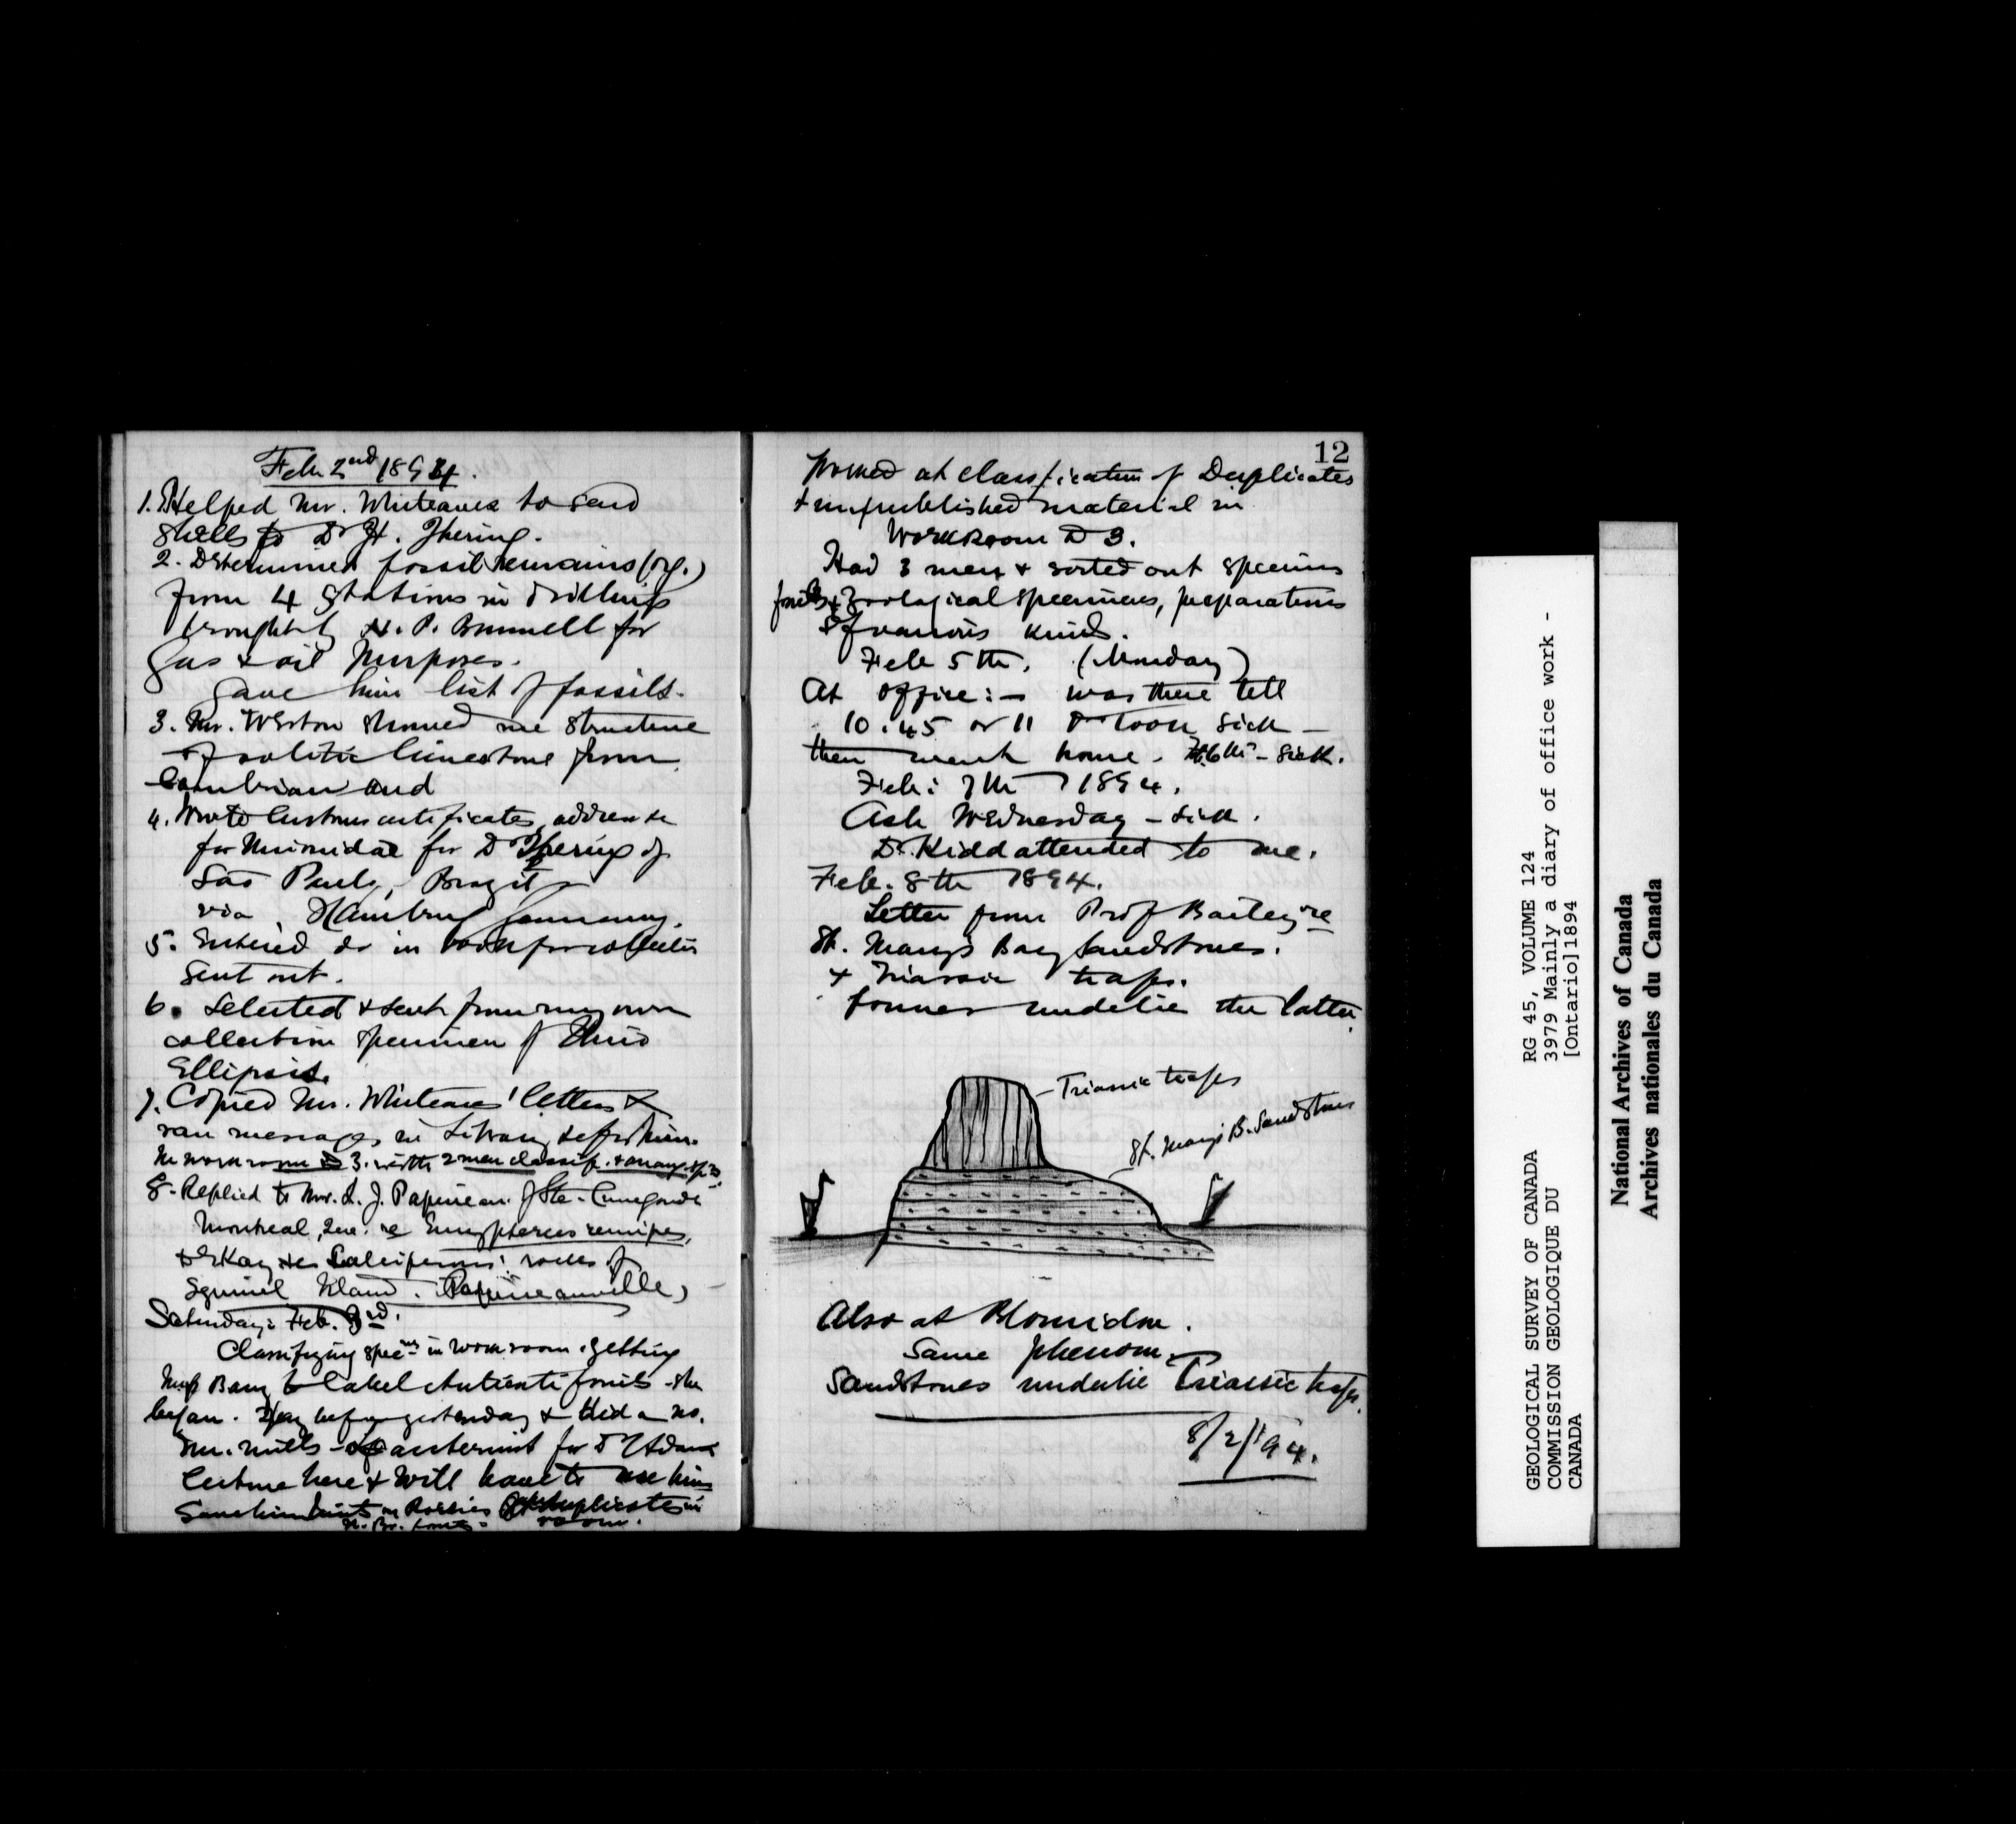 Feb 2nd 1894.
1. Helped Mr. Whiteaves to send
shells to Dr H. Ihering.
2. Determined fossil remains (org.)
from 4 stations in drillings
brought by H. P. Brumell for
Gas & oil purposes.
Gave him list of fossils.
3. Mr. Weston showed me structure
of oolitic limestone from
Cambrian and
4. Wrote Customs certificates, address &c
for Unionidae for Dr Ihering of
Sao Paulo, Brazil
via Hamburg Germany.
5. Entered do in book for
sent out.
6. Selected & sent from my own
collection specimen of Unio
Ellipsis.
7. Copied Mr. Whiteaves' letters &
ran messages in Library &c for him.
In work room D 3. with 2 men classif. & arrang.
8. Replied to Mr. L. J. Papineau of Ste-Cunegonde
Montreal, Que. re Eurypterus remipes,
DeKay rocks of
Squirrel Island. (Papineauville)
Saturday: Feb. 3rd.
Classifying specns in work room. getting
Miss Barry to label Anticosti fossils - she
began. day before yesterday & did a no.
Mr. Mills for Dr Adams
lecture here & will have to use him
Gave him hints on Rockies duplicates in
room.
12
Worked at classification of Duplicates
& unpublished material in
Workroom D 3.
Had 3 men & sorted out specims
fossils & Zoological specimens, preparations
of various kinds.
Feb 5th. (Monday)
At office: - was there till
10.45 or 11 & took sick -
then went home. Feb. 6th - Sick.
Feb: 7th 1894.
Ash Wednesday - sick.
Dr. Kidd attended to me.
Feb. 8th 1894.
Letter from Prof Bailey re
St. Mary's Bay Sandstones.
& Triassic traps.
former underlie the latter.
Triassic traps
St. Mary's B. Sandstones
Also at Blomidon.
Same phenom.
Sandstones underlie Triassic traps.
8/2/'94.
GEOLOGICAL SURVEY OF CANADA RG 45, VOLUME 124
COMMISSION GEOLOGIQUE DU 3979 Mainly a diary of office work -
CANADA [Ontario]1894
National Archives of Canada
Archives nationales du Canada